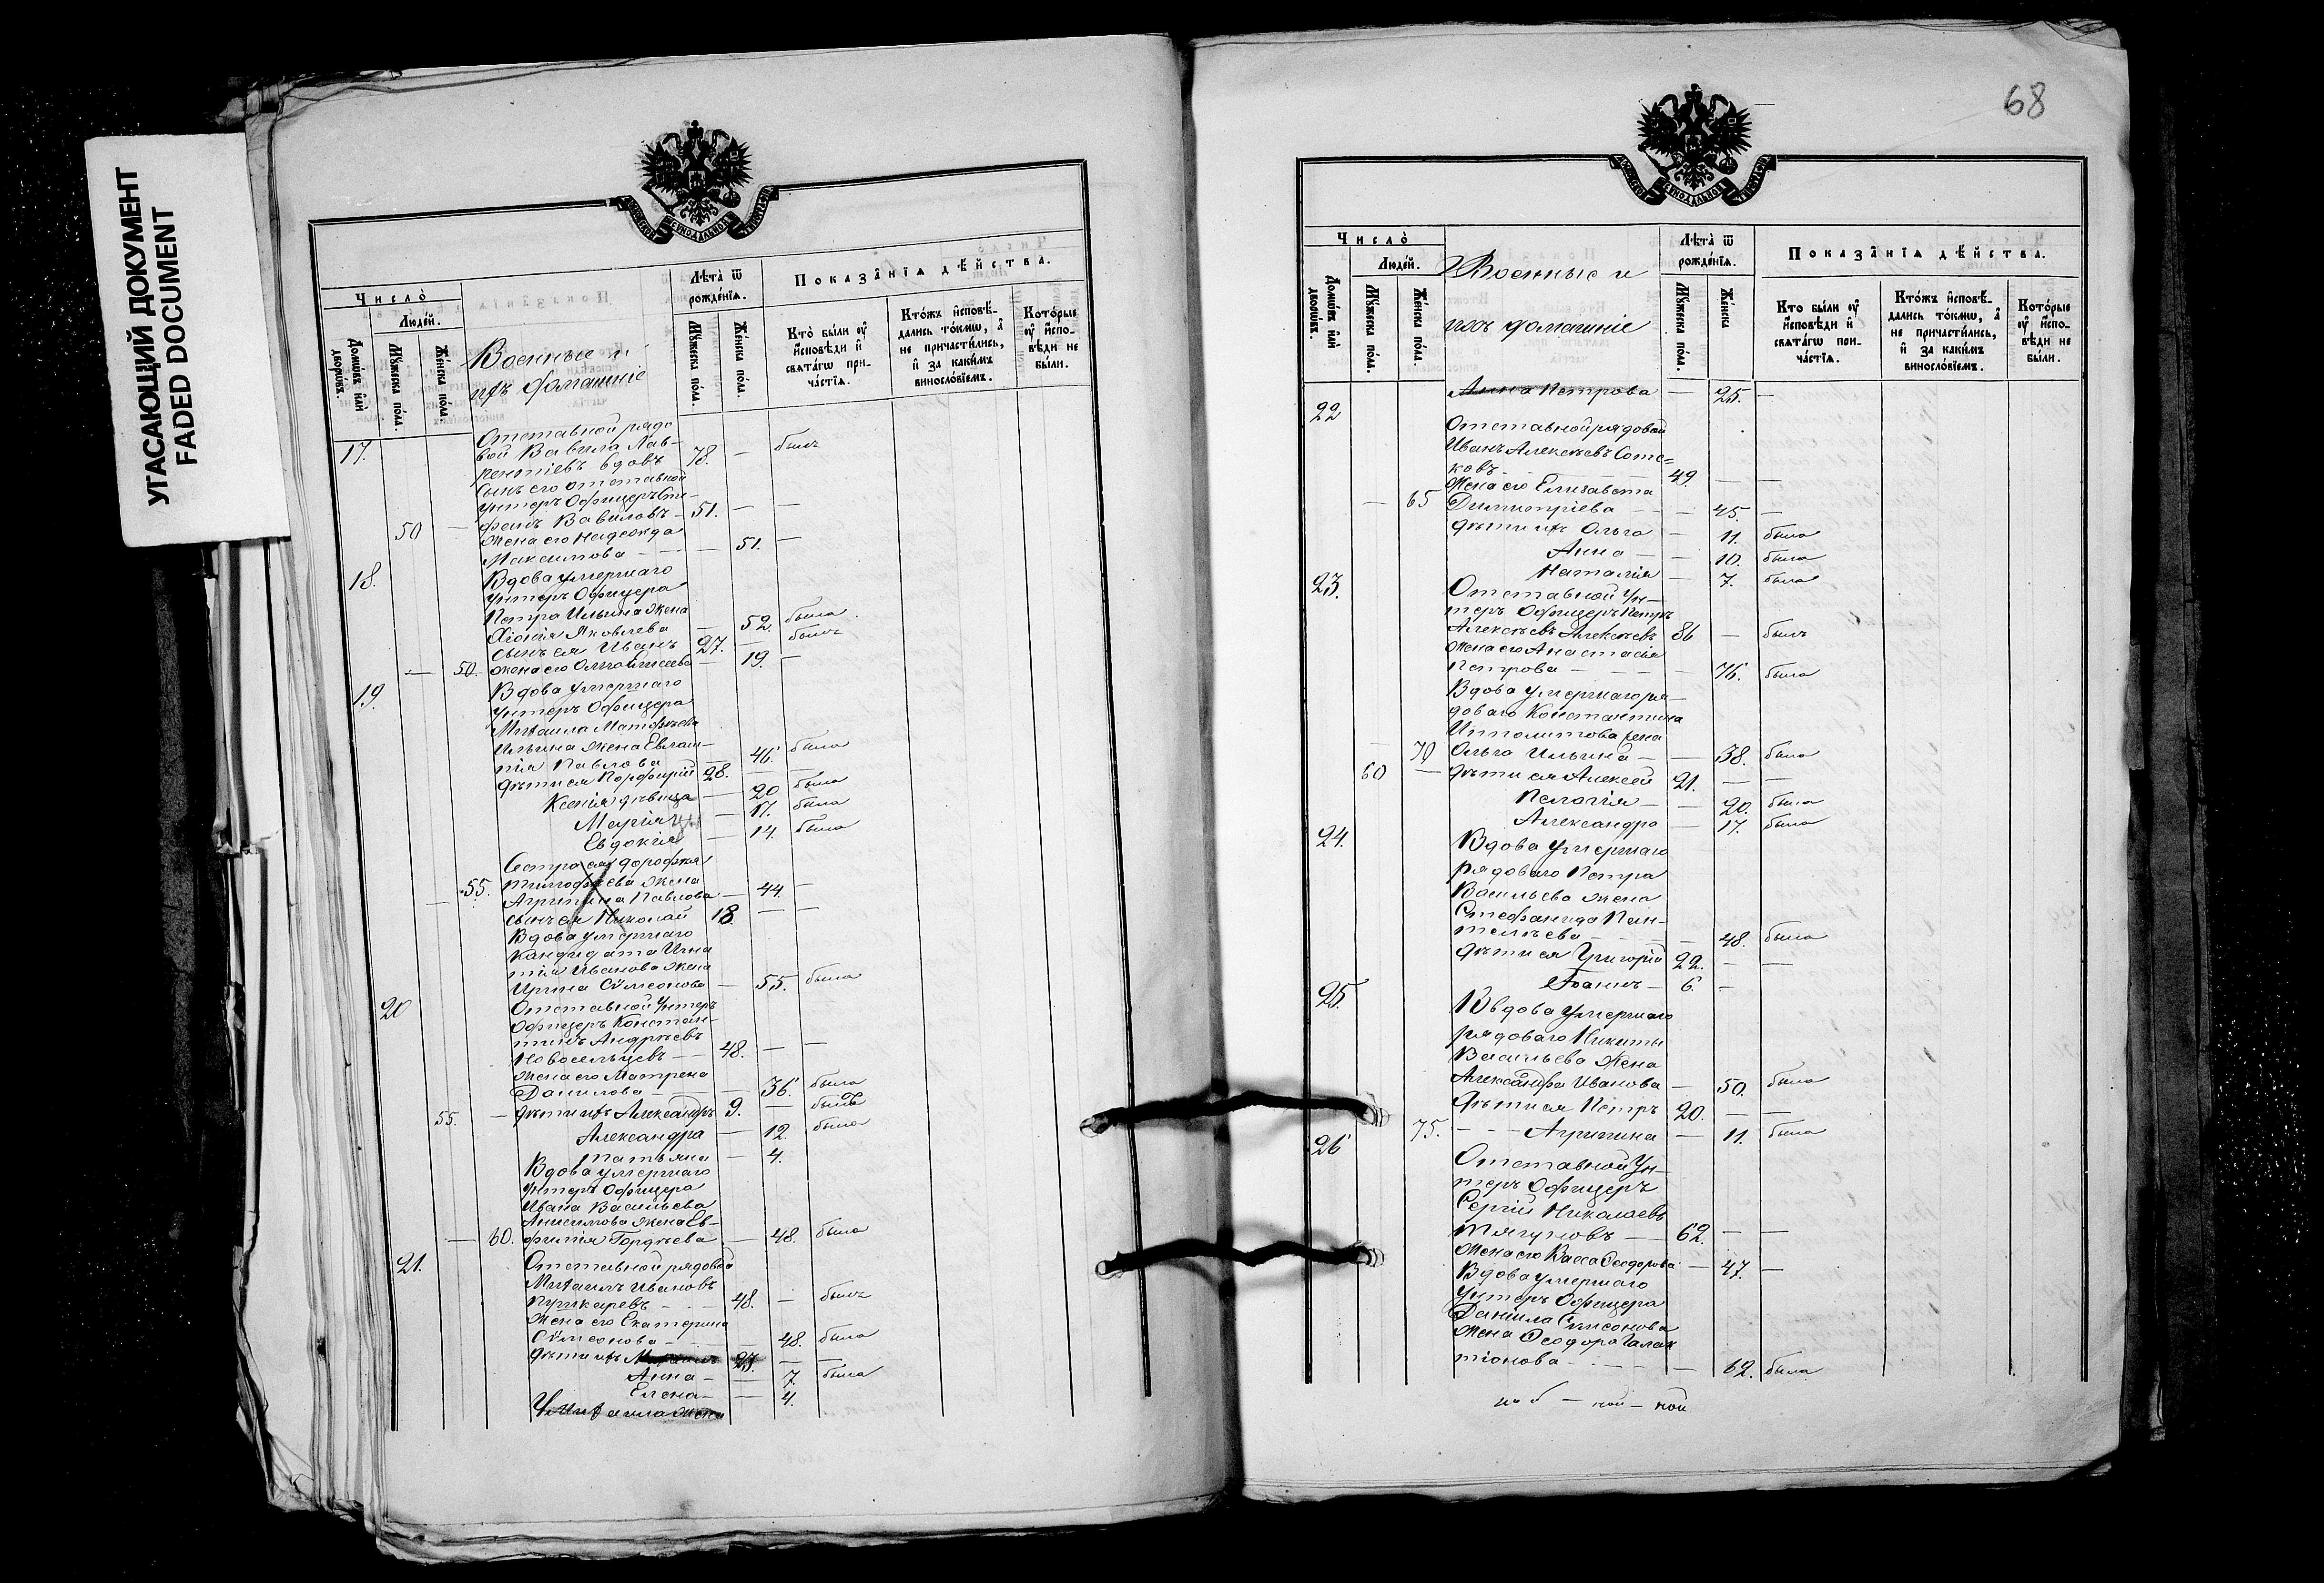 УГАСАЮЩИЙ ДОКУМЕНТ
FADED DOCUMENT
Число̀
Людей.
Домѡвъ или дворѡвъ.
Мꙋжеска пола.
Женска пола.
Военные и
ихъ домашніе
Лѣта̀ ѿ рожденїѧ.
Мꙋжеска пола.
Женска пола.
Показанїѧ дѣйства.
Кто были ᲂу҆
исповѣди и
свѧтагѡ при-
частїѧ.
Ктожъ исповѣ-
дались токмѡ, а
не причастились,
и за какимъ
винословїемъ.
Которые
ᲂу҆ испо-
вѣди не
были.
17. Отставной рядо
вой Вавила Лав-
рентіевъ вдовъ 78. — былъ
Сынъ его отставной
унтеръ Офицеръ Сте-
50 — фанъ Вавиловъ — 51. — —
Жена его Надежда
Максимова — — 51. —
18. Вдова умершаго
унтеръ Офицера
Петра Ильина жена
Хіонія Яковлева — 52. была
сынъ ея Иванъ 27. — былъ
— 50. жена его Ольга — 19. —
19. Вдова умершаго
унтеръ Офицера
Михаила Матѳѣева
Ильина жена Евлам-
пія Павлова — 46. была
дѣти ея Порфирій 28. — —
Ксенія дѣвица — 20 была
Марія — 17. была
Евдокія — 14. была
Сестра ея Дороѳея
Тимоѳеева жена
— 55. Агрипина Павлова — 44. —
сынъ ея Николай 18. — —
Вдова умершаго
Кандидата Игна
тія Иванова жена
Ирина Сѵмеонова — 55. была
20 Отставной Унтеръ
Офицеръ Констан-
тинъ Андреевъ
Новосельцевъ — — 48. — —
Жена его Матрена
Данилова — — 36. была
55. — дѣти ихъ Александръ 9. — былъ
Александра — 12. была
Татьяна — 4.
Вдова умершаго
Унтеръ Офицера
Ивана Васильева
Анисимова жена Ев-
— 60. фимія Гордѣева — 48. была
21. Отставной рядовой
Михаилъ Ивановъ
Пушкаревъ — — 48. — былъ
Жена его Екатерина
Сѵмеонова — — 48. была
дѣти ихъ 23. — —
Анна — — 7. была
Елена — — 4.
Михаила жена
68
Число̀
Людей.
Домѡвъ или дворѡвъ.
Мꙋжеска пола.
Женска пола.
Военные и
ихъ домашніе
Лѣта̀ ѿ рожденїѧ.
Мꙋжеска пола.
Женска
Показанїѧ дѣйства.
Кто были ᲂу҆
исповѣди и
свѧтагѡ при-
частїѧ.
Ктожъ исповѣ-
дались токмѡ, а
не причастились,
и за какимъ
винословїемъ.
Которые
ᲂу҆ испо-
вѣди не
были.
Анна Петрова — 25. —
22 Отставной рядовой
Иванъ Алексѣевъ Сот-
ковъ — — 49. — —
Жена его Елизавета
— 65 Димитріева — — 45. —
дѣти ихъ Ольга — 11. была
Анна — — 10. была
Наталія — 7. была
23. Отставной Ун-
теръ Офицеръ Петръ
Алексѣевъ Алексѣевъ 86 — былъ
Жена его Анастасія
Петрова — — 76. была
Вдова умершаго ря-
доваго Константина
Ипполитова жена
70 Ольга Ильина — — 38. была
60 — дѣти ея Алексей 21. — —
Пелагія — — 20. была
Александра — 17. была
24. Вдова умершаго
рядоваго Петра
Васильева жена
Стефанида Пан-
телѣева — — 48. была
дѣти ея Григорій 22. — —
Іоаннъ — 6. —
25. Вдова умершаго
рядоваго Никиты
Васильева жена
Александра Иванова — 50. была
дѣти ея Петръ 20. — —
75. — — Агрипина — 11. была
26 Отставной Ун-
теръ Офицеръ
Сергій Николаевъ
Тягуновъ — 62. — —
Жена его Васса Ѳеодорова — 47. —
Вдова умершаго
Унтеръ Офицера
Даніила Симеонова
жена Ѳеодора Галак
тіонова — — — 62. была